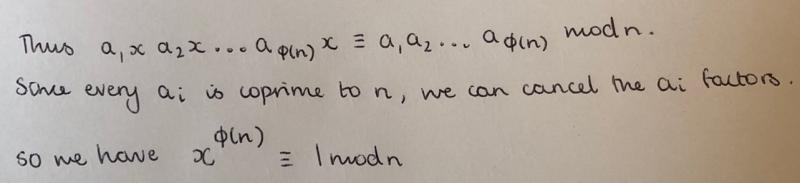 Thus a₁x a₂x ... a_φ(n) x ≡ a₁a₂ ... a_φ(n) mod n.
Since every aᵢ is coprime to n, we can cancel the aᵢ factors.
so we have x^φ(n) ≡ 1 mod n